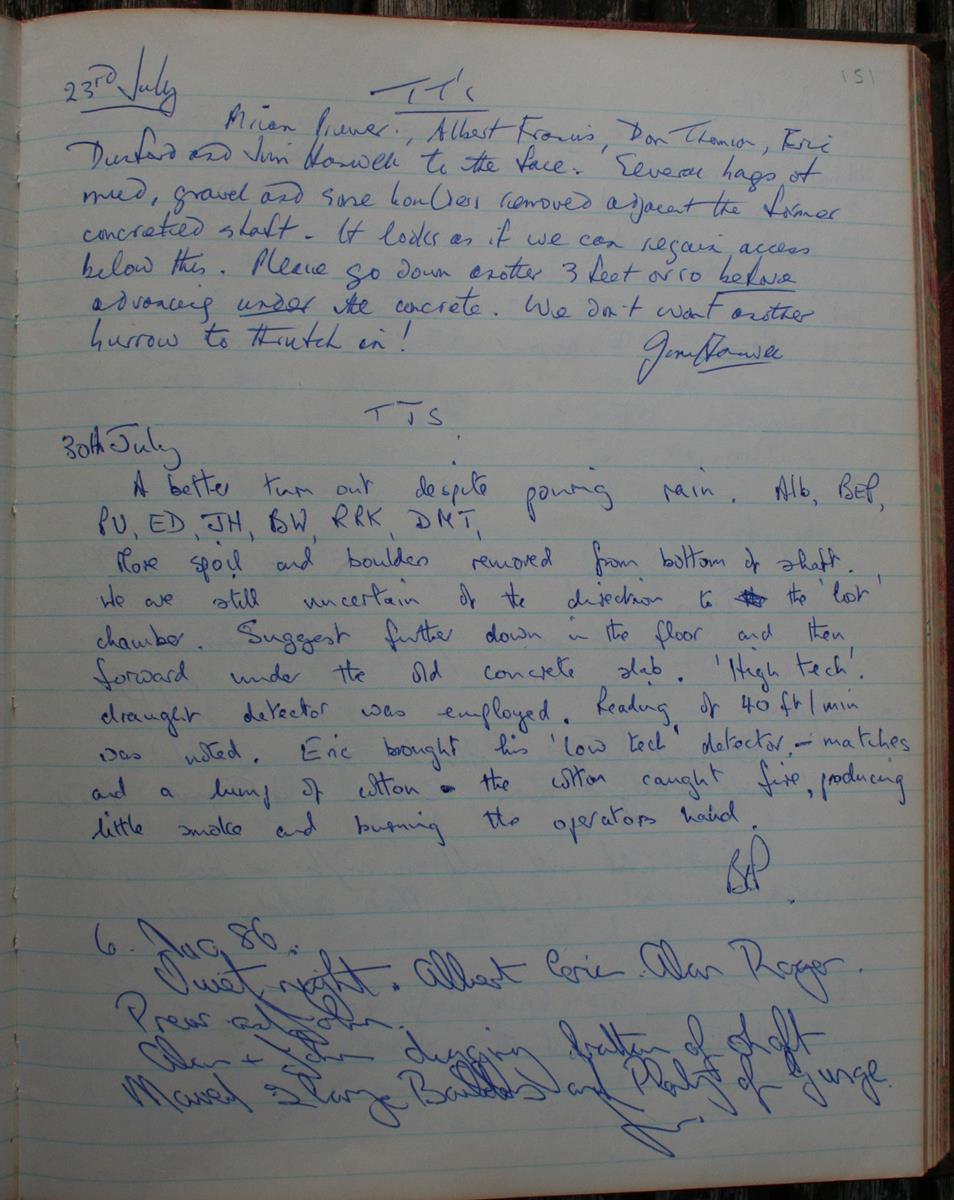 151
23rd July TT's
Prewer., Albert Francis, Don Thomson, Eric
Dunford and Jim Hanwell to the face. Several bags of
mud, gravel and some boulders removed adjacent the former
concreted shaft. It looks as if we can regain access
below this. Please go down another 3 feet or so before
advancing under the concrete. We don't want another
burrow to thrutch in!
Jim Hanwell
TTS.
30th July
A better turn out despite pouring rain. Alb, BEP,
PU, ED, JH, BW, RRK, DMT,
More spoil and boulders removed from bottom of shaft.
We are still uncertain of the direction to the 'lost'
chamber. Suggest further down in the floor and then
forward under the old concrete slab. 'High tech'.
draught detector was employed. Reading of 40 ft/min
was noted. Eric brought his 'low tech' detector - matches
and a lump of cotton - the cotton caught fire, producing
little smoke and burning the operators hand.
BEP.
6. Aug 86.
Quiet night. Albert Eric Alan
Prew and John.
Alan + John digging bottom of shaft
Moved 2 Large Boulders and Plenty of Gunge.